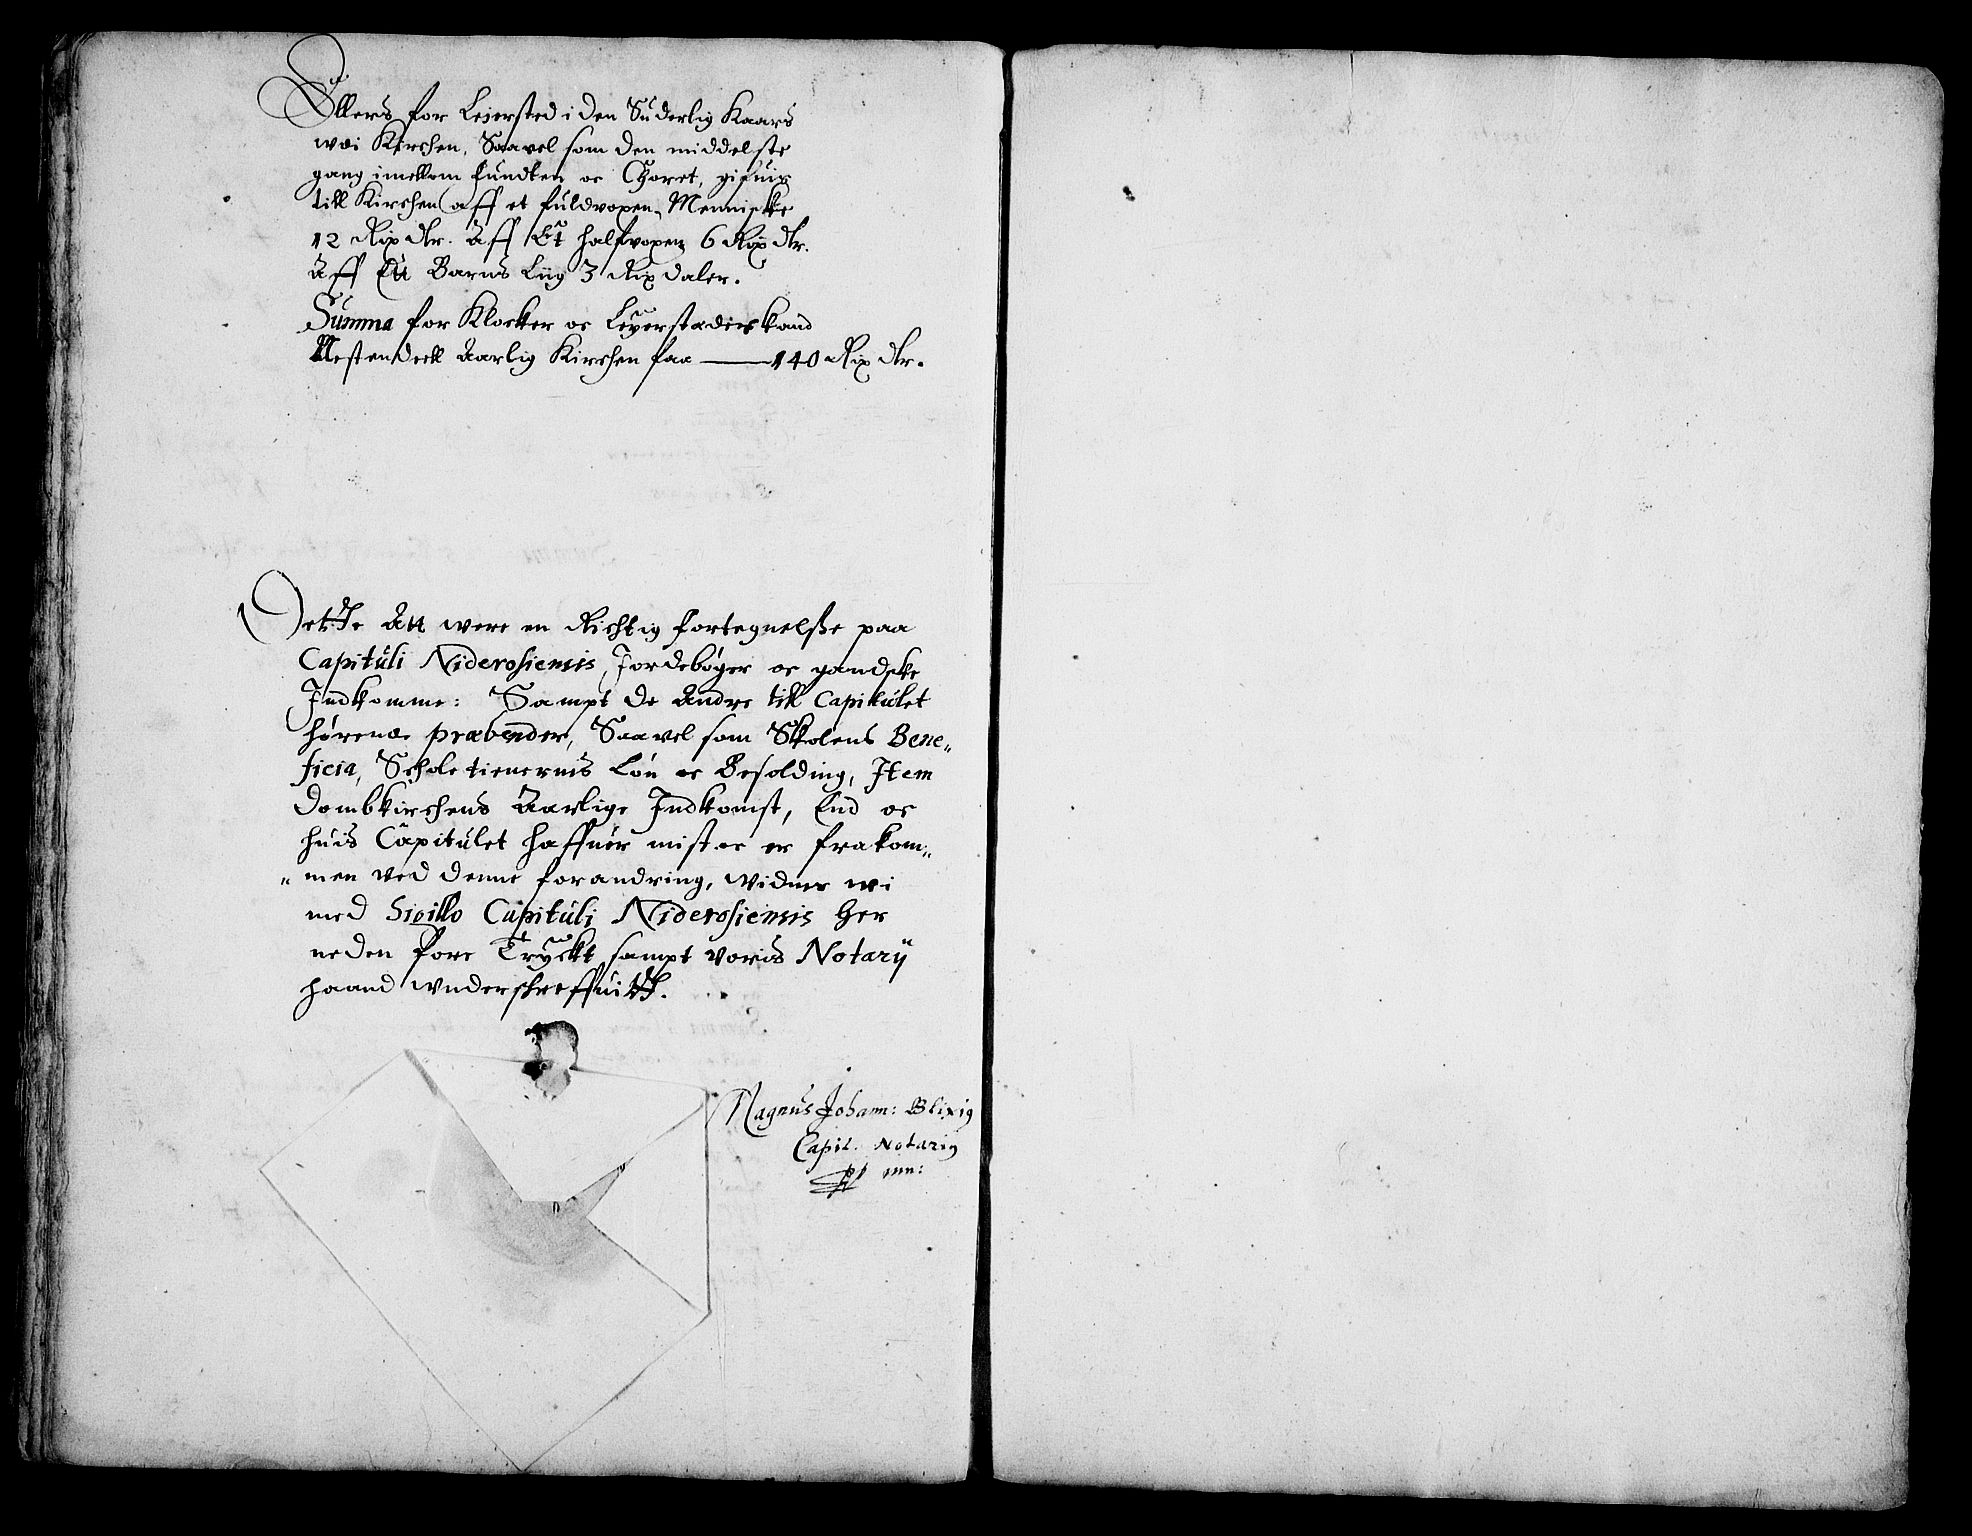 Ellers for Leiersted i den Süderlig Kaars
wæi Kirchen, Saavel som den middelste
gang imellom fundten oc Choret, gifuis
till Kirchen aff et fuldvoxen Menniske
12 Rix dlr. Aff Et halfvoxen 6 Rix dlr.
Aff Ett Barns Liig 3 Rix daler.
Summa for Klocker oc Leyerstæder kand
Nestendeell Aarlig Kirchen faa — 140 Rix dlr.
Dette Att were en Richtig fortegnelsse paa
Capituli Niderosiensis Jordebøger oc gandske
Indkomme: Sampt de Andre till Capitulet
hørende præbender, Saavel som Skolens Bene„
ficia, Scholetienernis Løn oc Besolding, Item
Dombkirchens Aarlige Indkomst, End oc
huis Capitulet haffuer mist oc er frakom„
„men ved denne forandring, Widner wi
med Sigillo Capituli Niderosiensis her
neden fore Tryckt sampt voris Notarij
haand wnderskreffuitt.
Magnus Johann: Blixig
Capit. Notarig
mn: